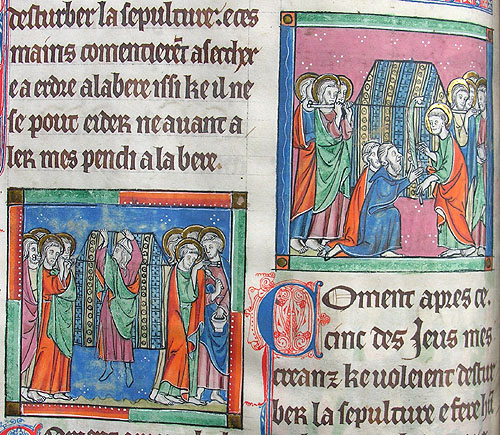 desturber la sepulture. e ces
mains comencierẽt a sechir
e a erdre a la bere issi ke il ne
se pout eider ne auant a
ler mes pendi a la bere.
Coment apres ce.
cinc des Jeus mes
creanz ke uoleient destur
ber la sepulture e fere